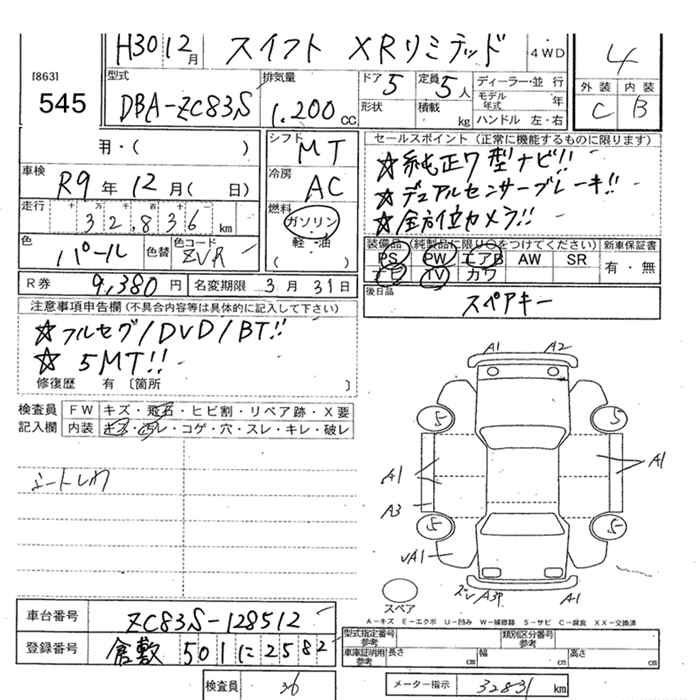 H30 12月 スイフト XRリミテッド 4WD 4
[863] 型式 排気量 ドア 5 定員 5人 ディーラー・並 行 外装 内装
545 DBA-ZC83S 1.200cc 形状 積載 kg モデル年式 年 C B
ハンドル 左・右
シフト MT セールスポイント (正常に機能するものに限ります)
用・( ) ☆純正7型ナビ!!
車検 R9年12月( 日) 冷房 AC ☆デュアルセンサーブレーキ!!
走行 十 万 千 百 十 一 32,836km 燃料 ガソリン ☆全方位カメラ!!
軽・油 ( )
色 パール 色替 色コード ZVR 装備品 (純製品に限り○をつけてください) 新車保証書
PS PW エアB AW SR 有・無
ナビ TV カワ
R券 9,380円 名変期限 3月31日 後日品 スペアキー
注意事項申告欄 (不具合内容等は具体的に記入して下さい)
☆フルセグ/DVD/BT!!
☆5MT!!
修復歴 有 〔箇所 〕
検査員記入欄 FW キズ・飛石・ヒビ割・リペア跡・X要
内装 キズ・汚レ・コゲ・穴・スレ・キレ・破レ
A1 A2
5 5
A1 A1
シートレカ
A3
5 5
A1
A3P A1
スペア
A-キズ E-エクボ U-凹み W-補修跡 S-サビ C-腐食 XX-交換済
車台番号 ZC83S-128512
型式指定番号 参考 類別区分番号 参考
登録番号 倉敷 501 に 2582 車庫証明用 参考 長さ cm 幅 cm 高さ cm
検査員 36 メーター指示 32831 km